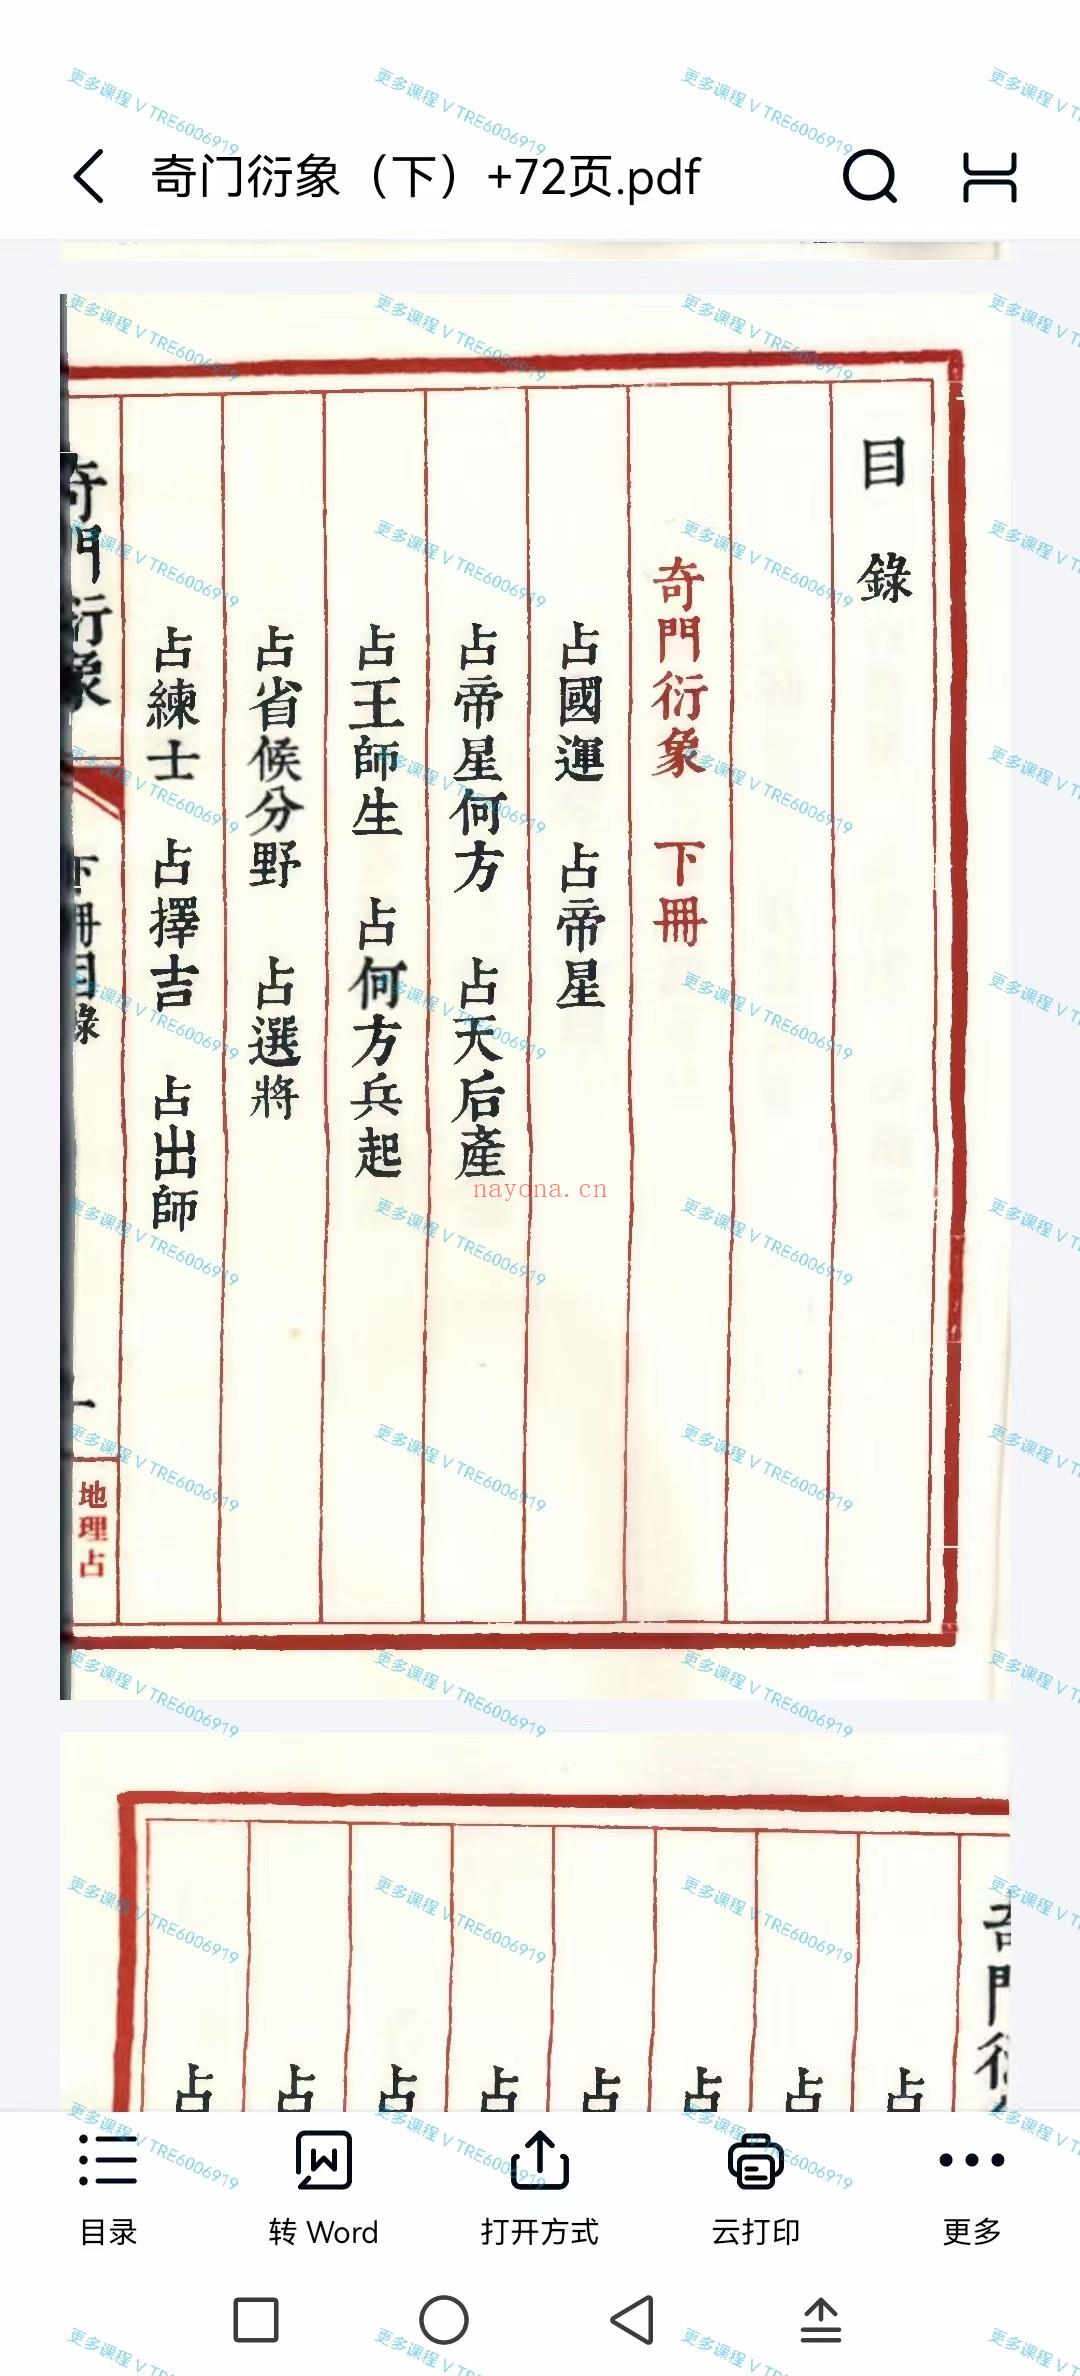 奇门衍象（下）+72页.pdf
目錄
奇門衍象 下冊
占國運 占帝星
占帝星何方 占天后產
占王師生 占何方兵起
占省候分野 占選將
占練士 占擇吉 占出師
奇門衍象 下冊目錄 一
地理占
nayona.cn
占
占
占
占
占
占
占
占
目录
转 Word
打开方式
云打印
更多
更多课程 V TRE6006919